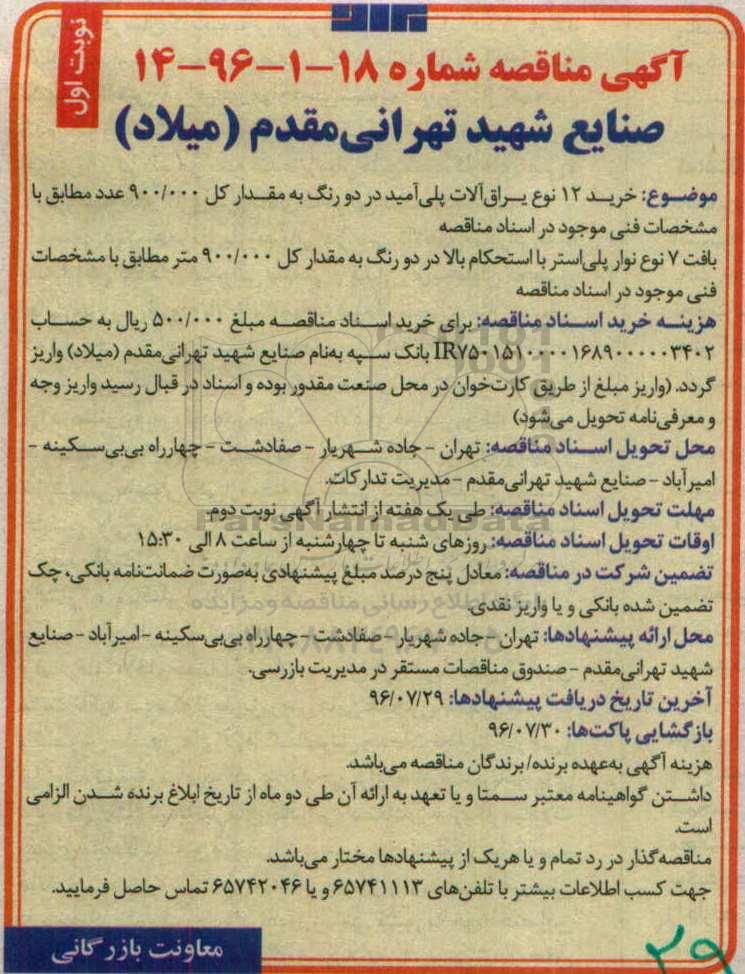 نوبت اول
آگهی مناقصه شماره ۱۸-۱-۹۶-۱۴
صنایع شهید تهرانی‌مقدم (میلاد)
موضوع: خرید ۱۲ نوع یراق‌آلات پلی‌آمید در دو رنگ به مقدار کل ۹۰۰/۰۰۰ عدد مطابق با
مشخصات فنی موجود در اسناد مناقصه
بافت ۷ نوع نوار پلی‌استر با استحکام بالا در دو رنگ به مقدار کل ۹۰۰/۰۰۰ متر مطابق با مشخصات
فنی موجود در اسناد مناقصه
هزینه خرید اسناد مناقصه: برای خرید اسناد مناقصه مبلغ ۵۰۰/۰۰۰ ریال به حساب
IR۷۵۰۱۵۱۰۰۰۰۱۶۸۹۰۰۰۰۰۳۴۰۲ بانک سپه به‌نام صنایع شهید تهرانی‌مقدم (میلاد) واریز
گردد. (واریز مبلغ از طریق کارت‌خوان در محل صنعت مقدور بوده و اسناد در قبال رسید واریز وجه
و معرفی‌نامه تحویل می‌شود)
محل تحویل اسناد مناقصه: تهران - جاده شهریار - صفادشت - چهارراه بی‌بی‌سکینه -
امیرآباد - صنایع شهید تهرانی‌مقدم - مدیریت تدارکات.
مهلت تحویل اسناد مناقصه: طی یک هفته از انتشار آگهی نوبت دوم.
ParsNamadData
اوقات تحویل اسناد مناقصه: روزهای شنبه تا چهارشنبه از ساعت ۸ الی ۱۵:۳۰
تضمین شرکت در مناقصه: معادل پنج درصد مبلغ پیشنهادی به‌صورت ضمانت‌نامه بانکی، چک
تضمین شده بانکی و یا واریز نقدی.
محل ارائه پیشنهادها: تهران - جاده شهریار - صفادشت - چهارراه بی‌بی‌سکینه - امیرآباد - صنایع
شهید تهرانی‌مقدم - صندوق مناقصات مستقر در مدیریت بازرسی.
آخرین تاریخ دریافت پیشنهادها: ۹۶/۰۷/۲۹
بازگشایی پاکت‌ها: ۹۶/۰۷/۳۰
هزینه آگهی به‌عهده برنده/برندگان مناقصه می‌باشد.
داشتن گواهینامه معتبر سمتا و یا تعهد به ارائه آن طی دو ماه از تاریخ ابلاغ برنده شدن الزامی
است.
مناقصه‌گذار در رد تمام و یا هریک از پیشنهادها مختار می‌باشد.
جهت کسب اطلاعات بیشتر با تلفن‌های ۶۵۷۴۱۱۱۳ و یا ۶۵۷۴۲۰۴۶ تماس حاصل فرمایید.
معاونت بازرگانی
۲۹